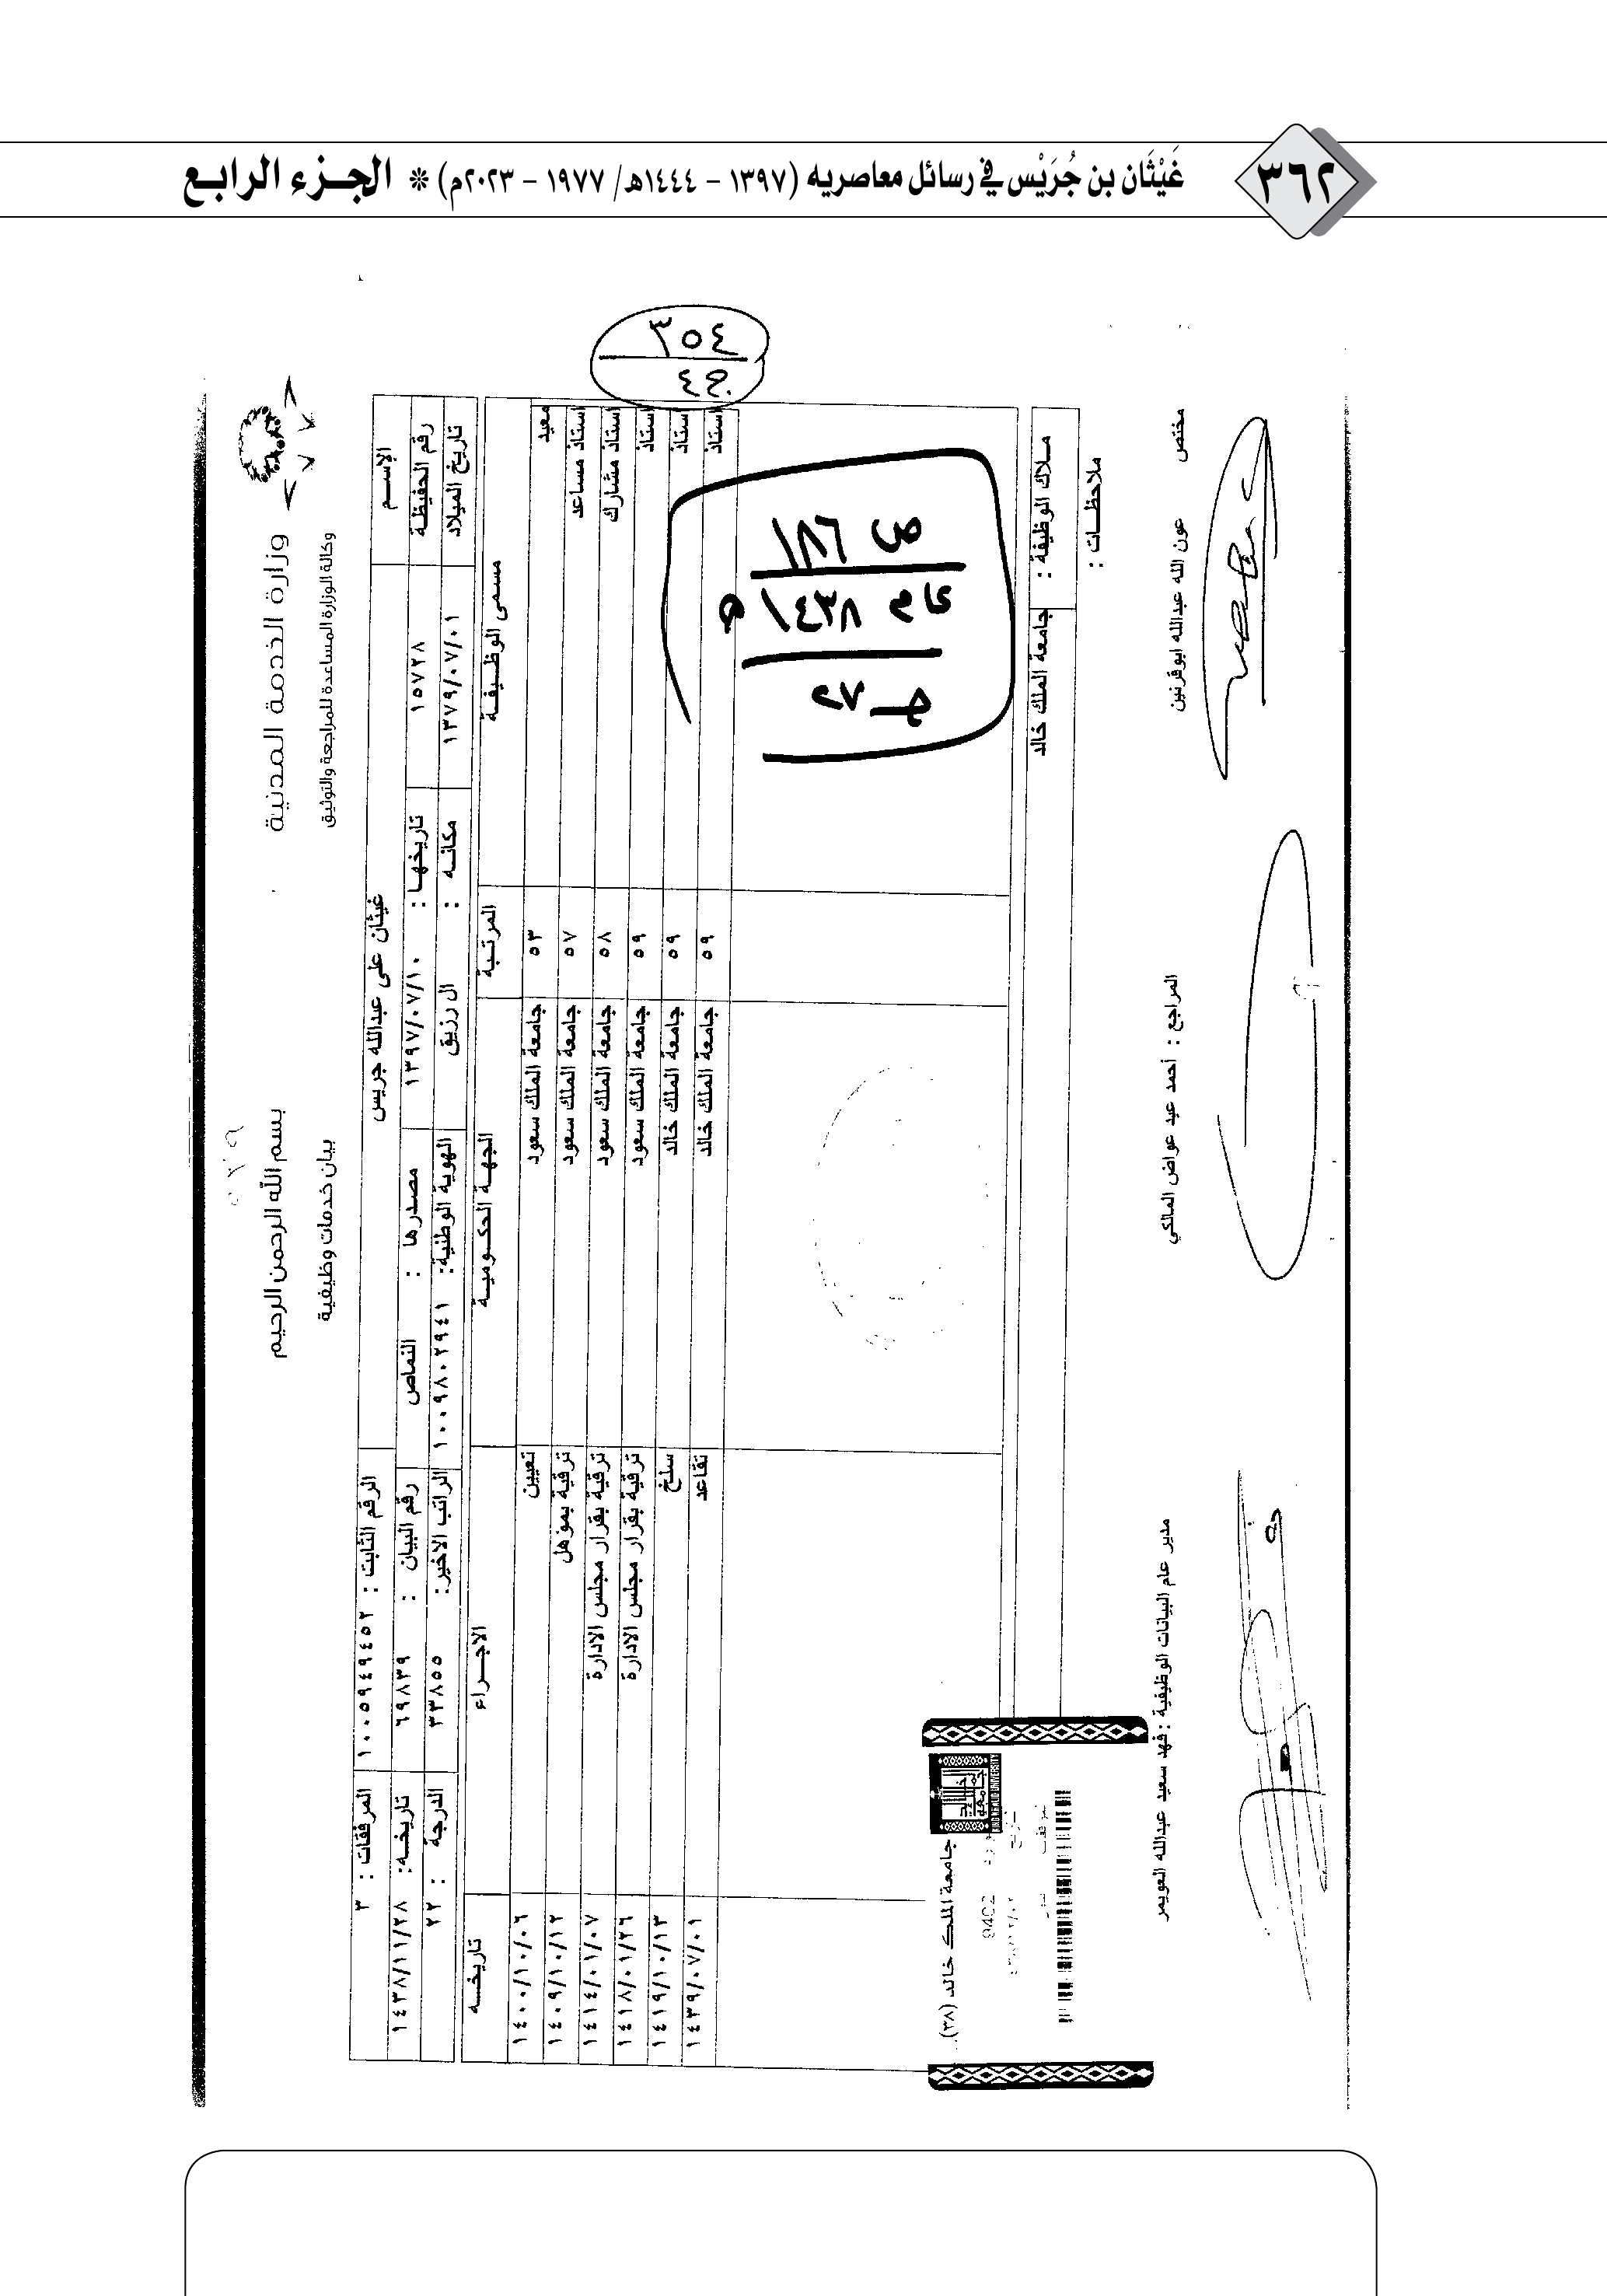 ٣٦٢
غَيْثَان بن جُرَيْس في رسائل معاصريه (١٣٩٧ - ١٤٤٤هـ/ ١٩٧٧ - ٢٠٢٣م) * الجزء الرابع
٣٥٤
ج٤
وزارة الخدمة المدنية
وكالة الوزارة المساعدة للمراجعة والتوثيق
بسم الله الرحمن الرحيم
بيان خدمات وظيفية
الإسم غيثان على عبدالله جريس الرقم الثابت : ١٠٠٥٩٤٩٤٥٢ المرفقات : ٣
رقم الحفيظة ١٥٧٢٨ تاريخها : ١٣٩٧/٠٧/١٠ مصدرها : النماص رقم البيان : ٦٩٨٣٩ تاريخه: ١٤٣٨/١١/٢٨
تاريخ الميلاد ١٣٧٩/٠٧/٠١ مكانه : ال رزيق الهوية الوطنية: ١٠٠٩٨٠٢٩٤١ الراتب الاخير: ٣٣٨٥٥ الدرجة : ٢٢
مسمى الوظيفة المرتبة الجهة الحكومية الاجراء تاريخه
معيد ٥٣ جامعة الملك سعود تعيين ١٤٠٠/١٠/٠٦
استاذ مساعد ٥٧ جامعة الملك سعود ترقية بمؤهل ١٤٠٩/١٠/١٢
استاذ مشارك ٥٨ جامعة الملك سعود ترقية بقرار مجلس الادارة ١٤١٤/٠١/٠٧
استاذ ٥٩ جامعة الملك سعود ترقية بقرار مجلس الادارة ١٤١٨/٠١/٢٦
استاذ ٥٩ جامعة الملك خالد سلخ ١٤١٩/١٠/١٣
استاذ ٥٩ جامعة الملك خالد تقاعد ١٤٣٩/٠٧/٠١
ص ١٨٦
عام ١٤٣٨ هـ
جـ ٢٧
ملاك الوظيفة : جامعة الملك خالد
ملاحظات :
جامعة الملك خالد (٣٨)
مختص عون الله عبدالله ابوقرنين
المراجع : احمد عيد عواض المالكي
مدير عام البيانات الوظيفية : فهد سعيد عبدالله العويمر